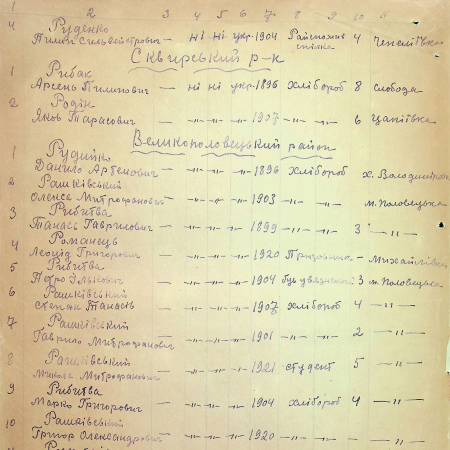 1 2 3 4 5 6 7 8 9 10 11
4 Руденко
Пилип Сильвейстрович — ні ні укр. 1904 Райспожив спілка 4
Сквирський р-н
1 Рибак
Арсень Пилипович — ні ні укр. 1896 хлібороб 8 слобода
2 Родін
Яков Тарасович — –"– –"– –"– 1907 –"– –"– 6
Великополовецький район
1 Рудийко
Данило Артемович — –"– –"– –"– 1896 хлібороб х.
2 Рашківський
Олекса Митрофанович — –"– –"– –"– 1903 –"– м. Половецьке
3 Рибитва
Танась Гаврилович — –"– –"– –"– 1899 –"– 3 –"–
4 Романець
Леонід Григорович — –"– –"– –"– 1920 — Михайлівка
5 Рибитва
Петро — –"– –"– –"– 1904 3 м. Половецьке
6 Рашківський
Степан Танасів — –"– –"– –"– 1907 хлібороб 4 –"–
7 Рашківський
Гаврило Митрофанович — –"– –"– –"– 1901 –"– 2 –"–
8 Рашківський
Микола Митрофанович — –"– –"– –"– 1921 студент 5 –"–
9 Рибитва
Марко Григорович — –"– –"– –"– 1904 хлібороб 4 –"–
10 Рашківський
Григор Олександрович — –"– –"– –"– 1920 –"– — –"–